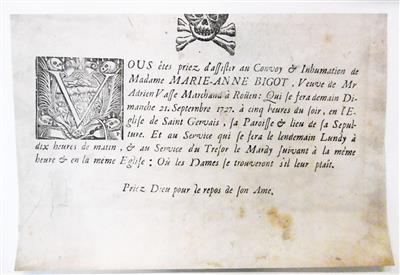 VOUS êtes priez d'assister au Convoy & Inhumation de
Madame MARIE-ANNE BIGOT, Veuve de Mr
Adrien Vasse Marchand à Roüen: Qui se fera demain Di-
manche 21. Septembre 1727. à cinq heures du soir, en l'E-
glise de Saint Gervais, sa Paroisse & lieu de sa Sepul-
ture. Et au Service qui se fera le lendemain Lundy à
dix heures de matin, & au Service du Tresor le Mardy suivant à la même
heure & en la même Eglise: Où les Dames se trouveront s'il leur plaît.
Priez Dieu pour le repos de son Ame.